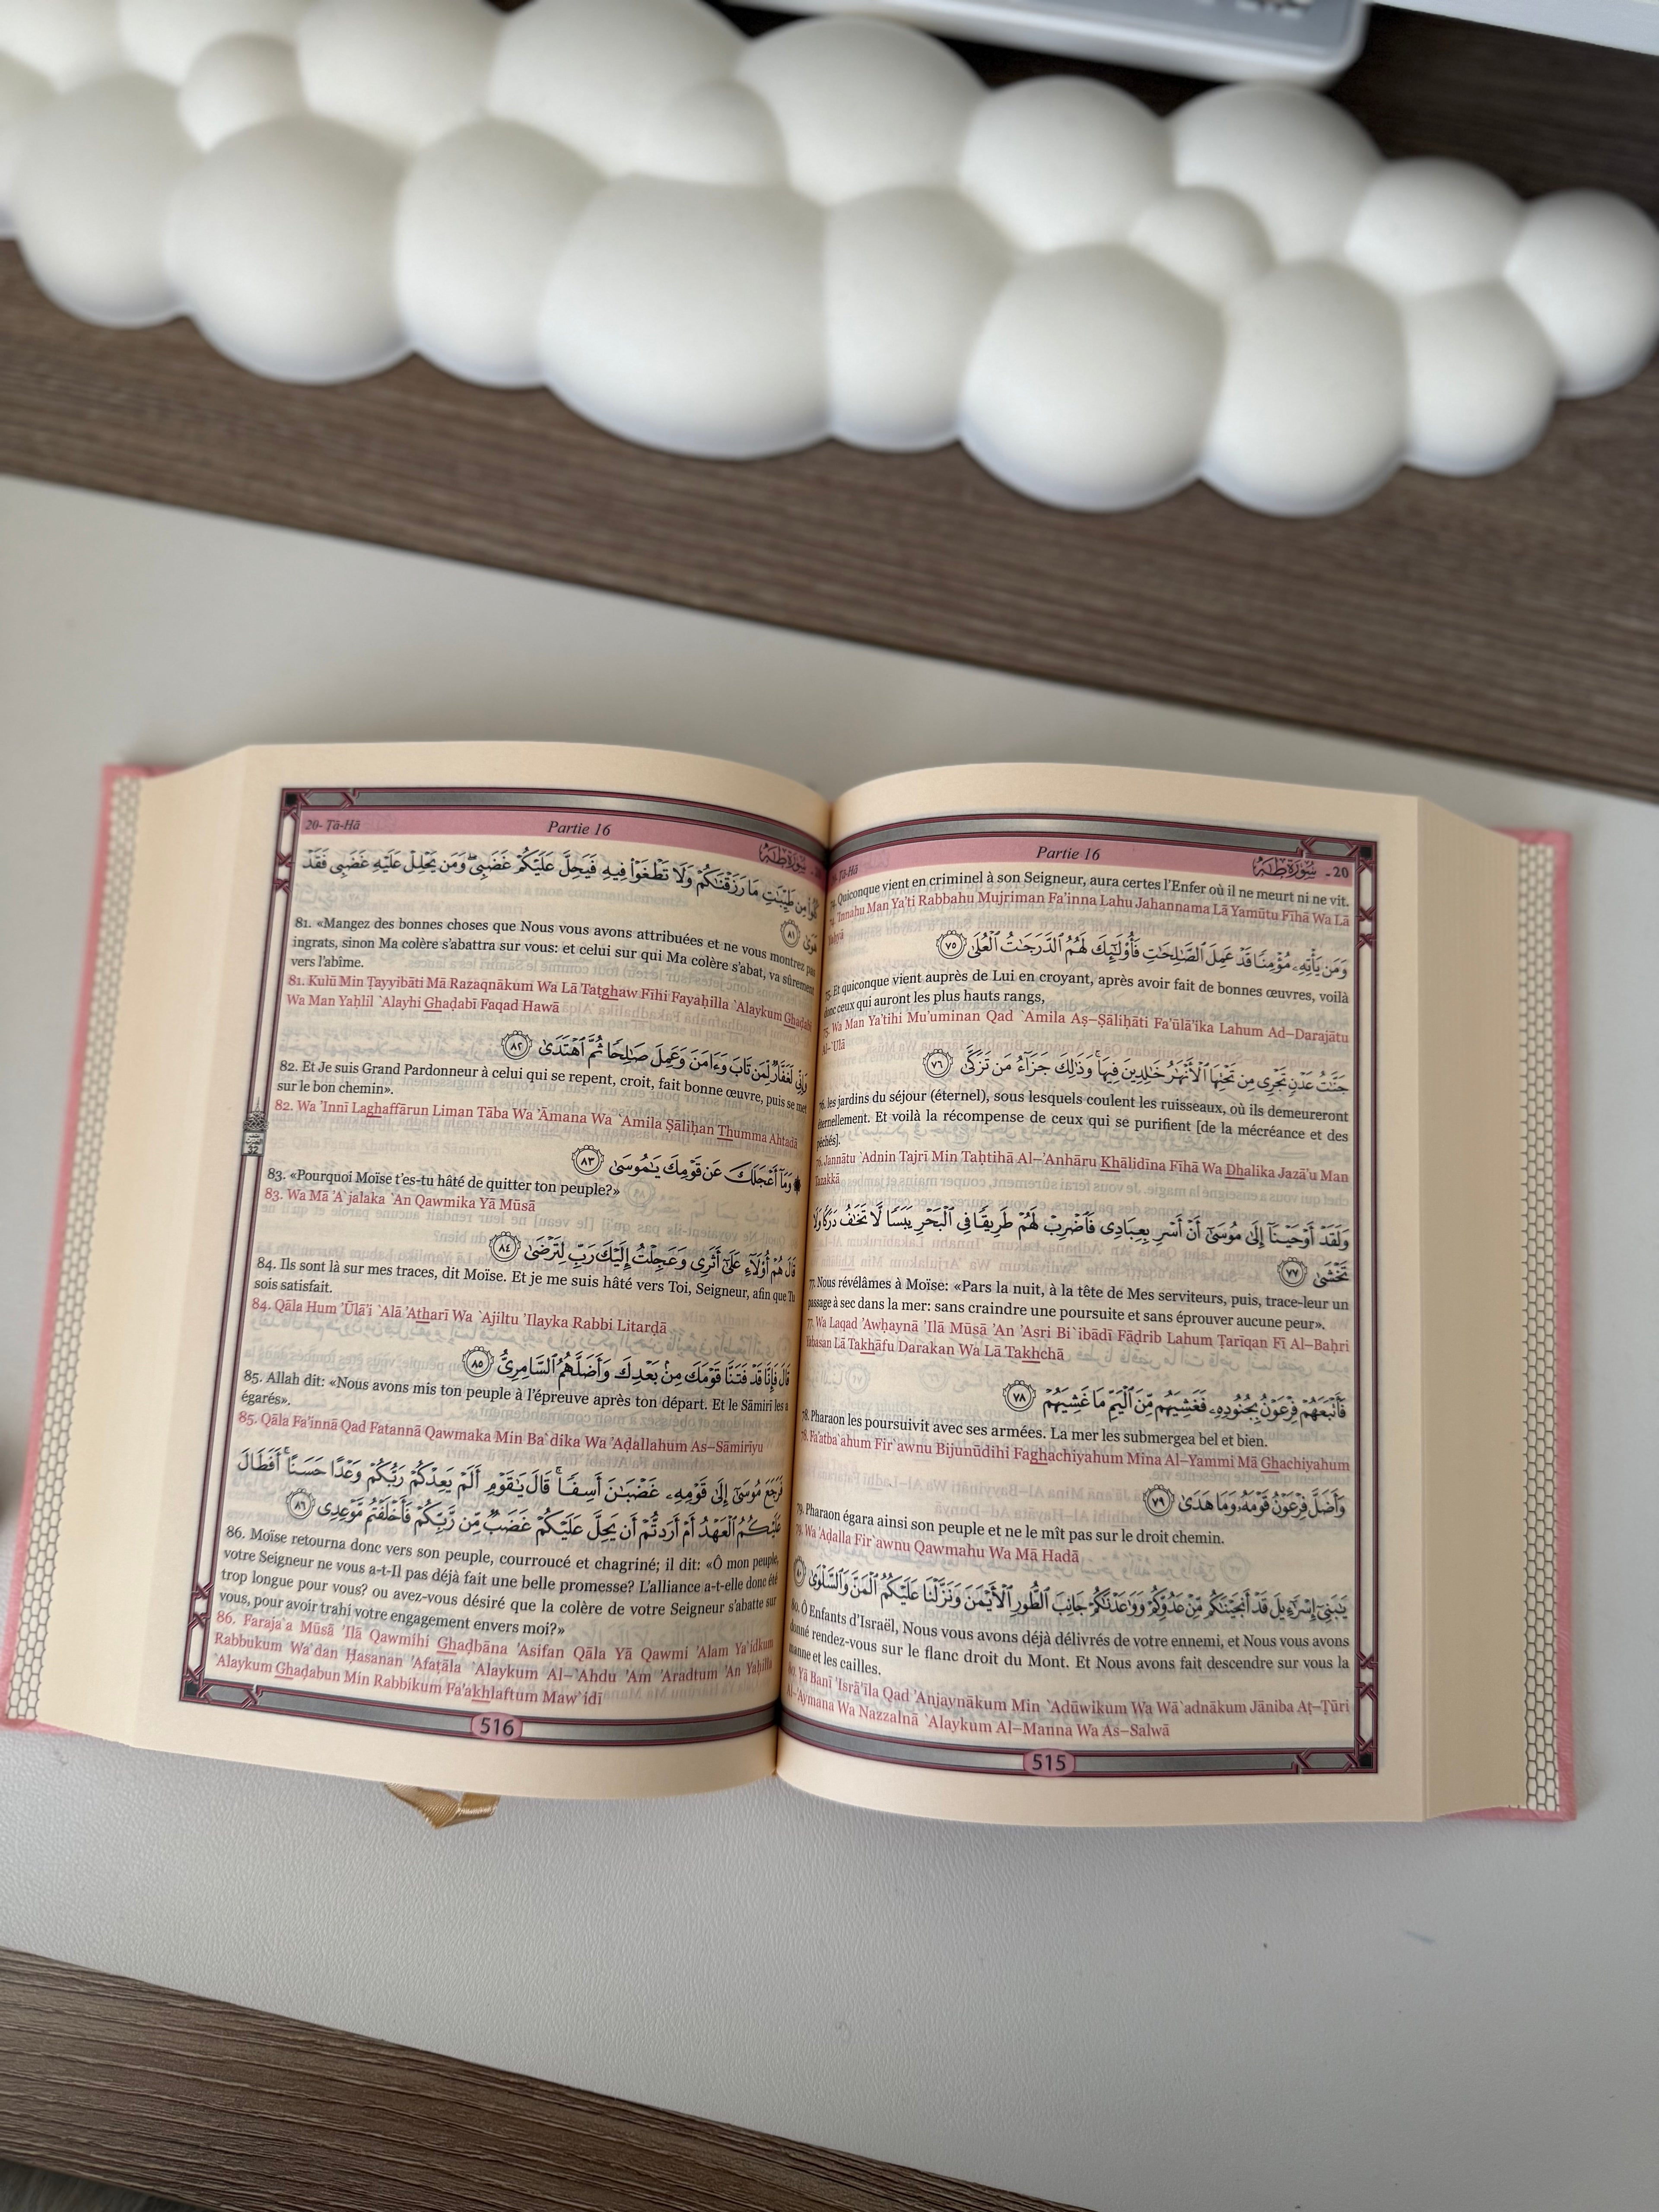 Ṭā-Hā Partie 16 سُورَةُ طه - 20
74. Quiconque vient en criminel à son Seigneur, aura certes l'Enfer où il ne meurt ni ne vit.
74. 'Innahu Man Ya'ti Rabbahu Mujriman Fa'inna Lahu Jahannama Lā Yamūtu Fīhā Wa Lā
Yaḥyā
وَمَن يَأْتِهِۦ مُؤْمِنًا قَدْ عَمِلَ ٱلصَّٰلِحَٰتِ فَأُو۟لَٰٓئِكَ لَهُمُ ٱلدَّرَجَٰتُ ٱلْعُلَىٰ ٧٥
75. Et quiconque vient auprès de Lui en croyant, après avoir fait de bonnes œuvres, voilà
donc ceux qui auront les plus hauts rangs,
75. Wa Man Ya'tihi Mu'uminan Qad `Amila Aṣ–Ṣāliḥāti Fa'ūlā'ika Lahum Ad–Darajātu
Al–`Ulā
جَنَّٰتُ عَدْنٍ تَجْرِى مِن تَحْتِهَا ٱلْأَنْهَٰرُ خَٰلِدِينَ فِيهَا ۚ وَذَٰلِكَ جَزَآءُ مَن تَزَكَّىٰ ٧٦
76. les jardins du séjour (éternel), sous lesquels coulent les ruisseaux, où ils demeureront
éternellement. Et voilà la récompense de ceux qui se purifient [de la mécréance et des
péchés].
76. Jannātu `Adnin Tajrī Min Taḥtihā Al–'Anhāru Khālidīna Fīhā Wa Dhalika Jazā'u Man
Tazakká
وَلَقَدْ أَوْحَيْنَآ إِلَىٰ مُوسَىٰٓ أَنْ أَسْرِ بِعِبَادِى فَٱضْرِبْ لَهُمْ طَرِيقًا فِى ٱلْبَحْرِ يَبَسًا لَّا تَخَٰفُ دَرَكًا وَلَا
تَخْشَىٰ ٧٧
77. Nous révélâmes à Moïse: «Pars la nuit, à la tête de Mes serviteurs, puis, trace-leur un
passage à sec dans la mer: sans craindre une poursuite et sans éprouver aucune peur».
77. Wa Laqad 'Awḥaynā 'Ilā Mūsā 'An 'Asri Bi`ibādī Fāḍrib Lahum Ṭarīqan Fī Al–Baḥri
Yabasan Lā Takhāfu Darakan Wa Lā Takhchā
فَأَتْبَعَهُمْ فِرْعَوْنُ بِجُنُودِهِۦ فَغَشِيَهُم مِّنَ ٱلْيَمِّ مَا غَشِيَهُمْ ٧٨
78. Pharaon les poursuivit avec ses armées. La mer les submergea bel et bien.
78. Fa'atba`ahum Fir`awnu Bijunūdihi Faghachiyahum Mina Al–Yammi Mā Ghachiyahum
وَأَضَلَّ فِرْعَوْنُ قَوْمَهُۥ وَمَا هَدَىٰ ٧٩
79. Pharaon égara ainsi son peuple et ne le mît pas sur le droit chemin.
79. Wa 'Aḍalla Fir`awnu Qawmahu Wa Mā Hadā
يَٰبَنِىٓ إِسْرَٰٓءِيلَ قَدْ أَنجَيْنَٰكُم مِّنْ عَدُوِّكُمْ وَوَٰعَدْنَٰكُمْ جَانِبَ ٱلطُّورِ ٱلْأَيْمَنَ وَنَزَّلْنَا عَلَيْكُمُ ٱلْمَنَّ وَٱلسَّلْوَىٰ ٨٠
80. Ô Enfants d'Israël, Nous vous avons déjà délivrés de votre ennemi, et Nous vous avons
donné rendez-vous sur le flanc droit du Mont. Et Nous avons fait descendre sur vous la
manne et les cailles.
80. Yā Banī 'Isrā'īla Qad 'Anjaynākum Min `Adūwikum Wa Wā`adnākum Jāniba Aṭ–Ṭūri
Al–'Aymana Wa Nazzalnā `Alaykum Al–Manna Wa As–Salwā
515
20- Ṭā-Hā Partie 16 سُورَةُ طه
كُلُوا۟ مِن طَيِّبَٰتِ مَا رَزَقْنَٰكُمْ وَلَا تَطْغَوْا۟ فِيهِ فَيَحِلَّ عَلَيْكُمْ غَضَبِى ۖ وَمَن يَحْلِلْ عَلَيْهِ غَضَبِى فَقَدْ
هَوَىٰ ٨١
81. «Mangez des bonnes choses que Nous vous avons attribuées et ne vous montrez pas
ingrats, sinon Ma colère s'abattra sur vous: et celui sur qui Ma colère s'abat, va sûrement
vers l'abîme.
81. Kulū Min Ṭayyibāti Mā Razaqnākum Wa Lā Taṭghaw Fīhi Fayaḥilla `Alaykum Ghaḍabī
Wa Man Yaḥlil `Alayhi Ghaḍabī Faqad Hawā
وَإِنِّى لَغَفَّارٌ لِّمَن تَابَ وَءَامَنَ وَعَمِلَ صَٰلِحًا ثُمَّ ٱهْتَدَىٰ ٨٢
82. Et Je suis Grand Pardonneur à celui qui se repent, croit, fait bonne œuvre, puis se met
sur le bon chemin».
82. Wa 'Innī Laghaffārun Liman Tāba Wa 'Āmana Wa `Amila Ṣāliḥan Thumma Ahtadā
وَمَآ أَعْجَلَكَ عَن قَوْمِكَ يَٰمُوسَىٰ ٨٣
32
83. «Pourquoi Moïse t'es-tu hâté de quitter ton peuple?»
83. Wa Mā 'A`jalaka `An Qawmika Yā Mūsā
قَالَ هُمْ أُو۟لَآءِ عَلَىٰٓ أَثَرِى وَعَجِلْتُ إِلَيْكَ رَبِّ لِتَرْضَىٰ ٨٤
84. Ils sont là sur mes traces, dit Moïse. Et je me suis hâté vers Toi, Seigneur, afin que Tu
sois satisfait.
84. Qāla Hum 'Ūlā'i `Alā 'Atharī Wa `Ajiltu 'Ilayka Rabbi Litarḍā
قَالَ فَإِنَّا قَدْ فَتَنَّا قَوْمَكَ مِنۢ بَعْدِكَ وَأَضَلَّهُمُ ٱلسَّامِرِىُّ ٨٥
85. Allah dit: «Nous avons mis ton peuple à l'épreuve après ton départ. Et le Sāmirī les a
égarés».
85. Qāla Fa'innā Qad Fatannā Qawmaka Min Ba`dika Wa 'Aḍallahum As–Sāmirīyu
فَرَجَعَ مُوسَىٰٓ إِلَىٰ قَوْمِهِۦ غَضْبَٰنَ أَسِفًا ۚ قَالَ يَٰقَوْمِ أَلَمْ يَعِدْكُمْ رَبُّكُمْ وَعْدًا حَسَنًا ۚ أَفَطَالَ
عَلَيْكُمُ ٱلْعَهْدُ أَمْ أَرَدتُّمْ أَن يَحِلَّ عَلَيْكُمْ غَضَبٌ مِّن رَّبِّكُمْ فَأَخْلَفْتُم مَّوْعِدِى ٨٦
86. Moïse retourna donc vers son peuple, courroucé et chagriné; il dit: «Ô mon peuple,
votre Seigneur ne vous a-t-Il pas déjà fait une belle promesse? L'alliance a-t-elle donc été
trop longue pour vous? ou avez-vous désiré que la colère de votre Seigneur s'abatte sur
vous, pour avoir trahi votre engagement envers moi?»
86. Faraja`a Mūsā 'Ilā Qawmihi Ghaḍbāna 'Asifan Qāla Yā Qawmi 'Alam Ya`idkum
Rabbukum Wa`dan Ḥasanan 'Afaṭāla `Alaykum Al–`Ahdu 'Am 'Aradtum 'An Yaḥilla
`Alaykum Ghaḍabun Min Rabbikum Fa'akhlaftum Maw`idī
516